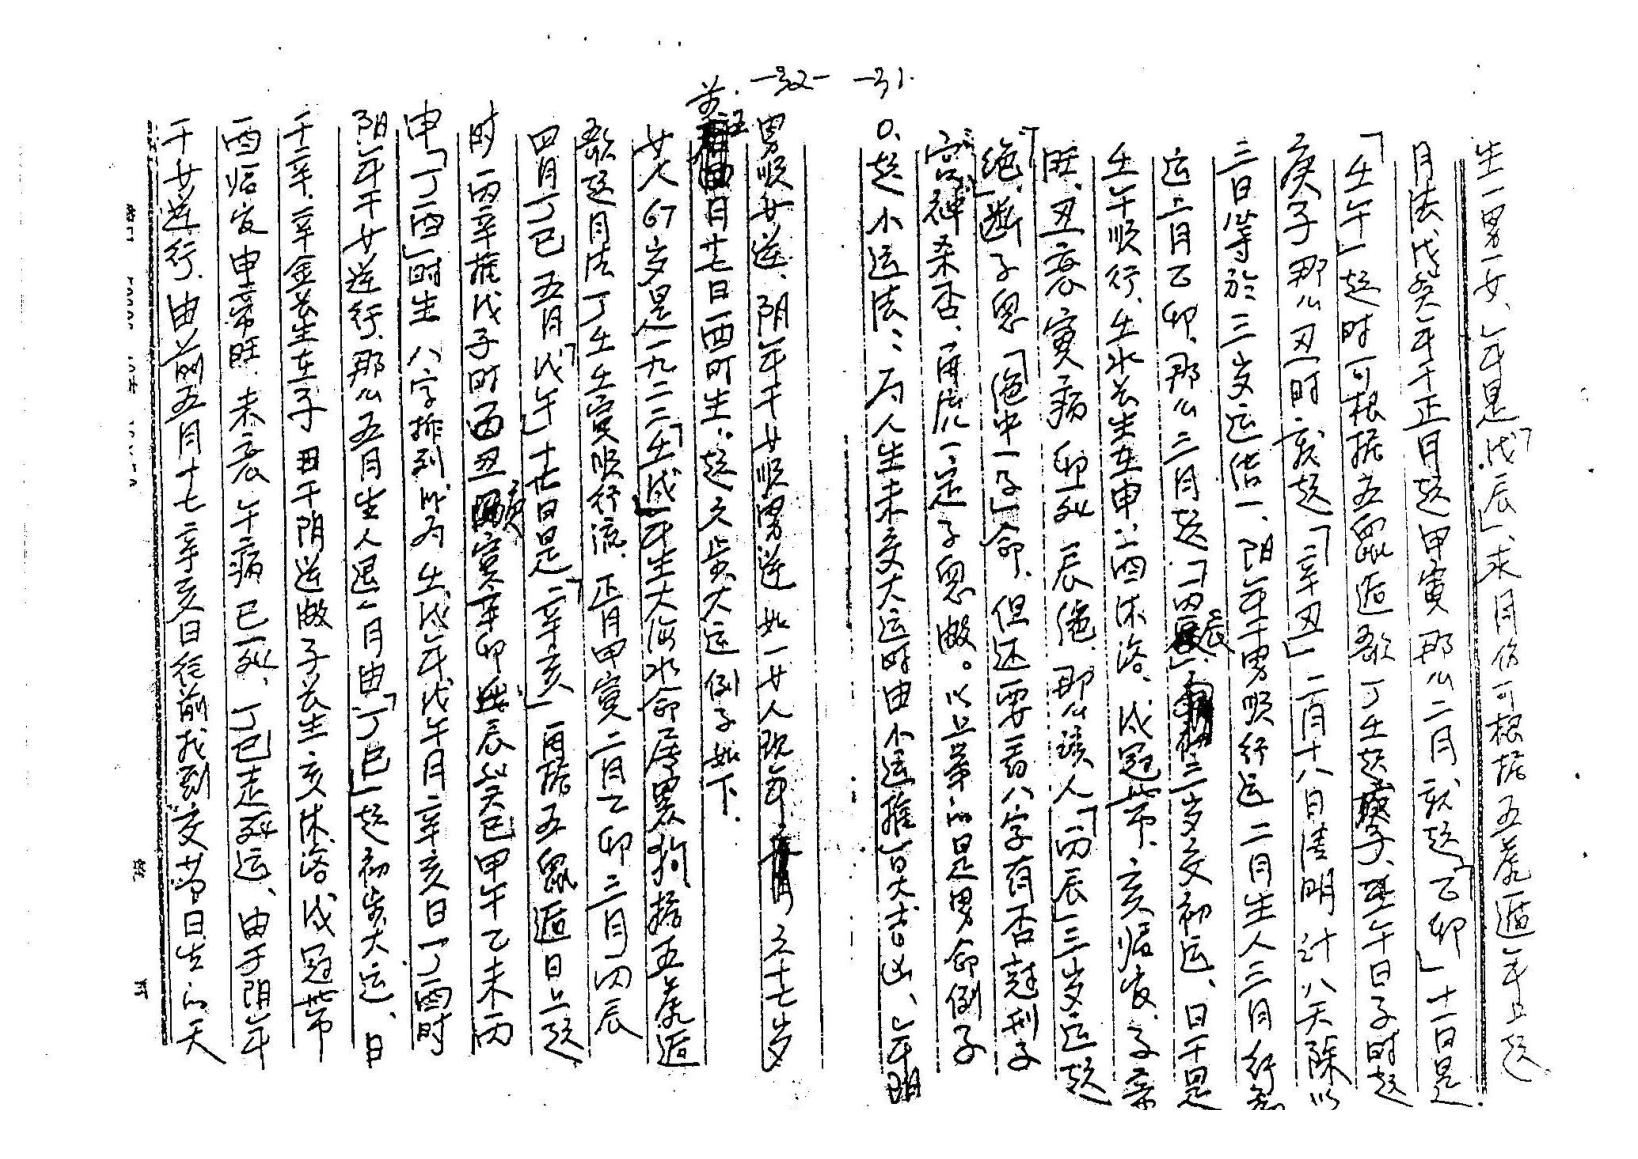 -31-
生一男一女、年是「戊辰」、求月份可根据五虎遁年上起
月法戊癸年干正月起甲寅那么二月就起「乙卯」十一日是
「壬午」起时可根据五鼠遁歌丁壬起庚子、壬午日子时起
庚子那么丑时就起「辛丑」二月十八日清明计八天除以
三日等於三岁运佔一、阳年干男顺行运二月生人三月行
运上月乙卯、那么三月起「丙辰」三岁交初运、日干是
壬午顺行、壬水长生在申、酉沐浴、戌冠带、亥临官、子帝
旺、丑衰寅病卯死辰绝、那么该人「丙辰」三岁运起
绝、「断子息「绝中一子」命、但还要看八字有否冠刑子
宫神杀否、再广一定子息做。以上举的是男命例子
0、起小运法：为人生未交大运时由小运推」是吉凶、年阳
-32-
男顺女逆、阴年干女顺男逆如一女人现年 六十七岁
前五月十七日酉时生、起六步大运例子如下.
女人67岁是一九二二「壬戌」年生大海水命属黑狗据五虎遁
歌起月法丁壬壬寅顺行流、正月甲寅二月乙卯三月丙辰
四月丁巳五月「戊午」十七日是「辛亥」再据五鼠遁日上起
时丙辛从戊子时酉丑 庚寅辛卯 辰 癸巳甲午乙未丙
申「丁酉」时生八字排列以为壬戌年戊午月辛亥日丁酉时
阴年干女逆行、那么五月生人退一月由「丁巳」起初步大运、日
干辛、辛金长生在子丑干阴逆做子长生亥沐浴戌冠带
酉临官申帝旺、未衰午病巳死、丁巳走死运、由于阴年
干女逆行、由前五月十七辛亥日往前找到交节日生的天